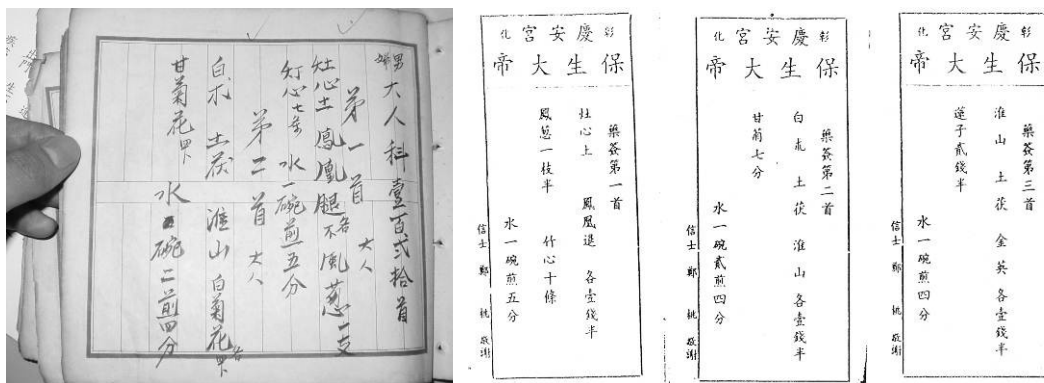 男婦 大人科壹百貳拾首
第一首 大人
灶心土 鳳凰腿 各 風蔥一支
灯心七條 水一碗煎五分
第二首 大人
白朮 土茯 淮山 白菊花 各
甘菊花
水 碗二煎四分
彰化慶安宮
保生大帝
藥簽第一首
灶心土 鳳凰退 各壹錢半
鳳蔥一枝半 竹心十條
水一碗煎五分
信士 鄭 桃 敬謝
彰化慶安宮
保生大帝
藥簽第二首
白朮 土茯 淮山 各壹錢半
甘菊七分
水一碗貳煎四分
信士 鄭 桃 敬謝
彰化慶安宮
保生大帝
藥簽第三首
淮山 土茯 金英 各壹錢半
蓮子貳錢半
水一碗煎四分
信士 鄭 桃 敬謝